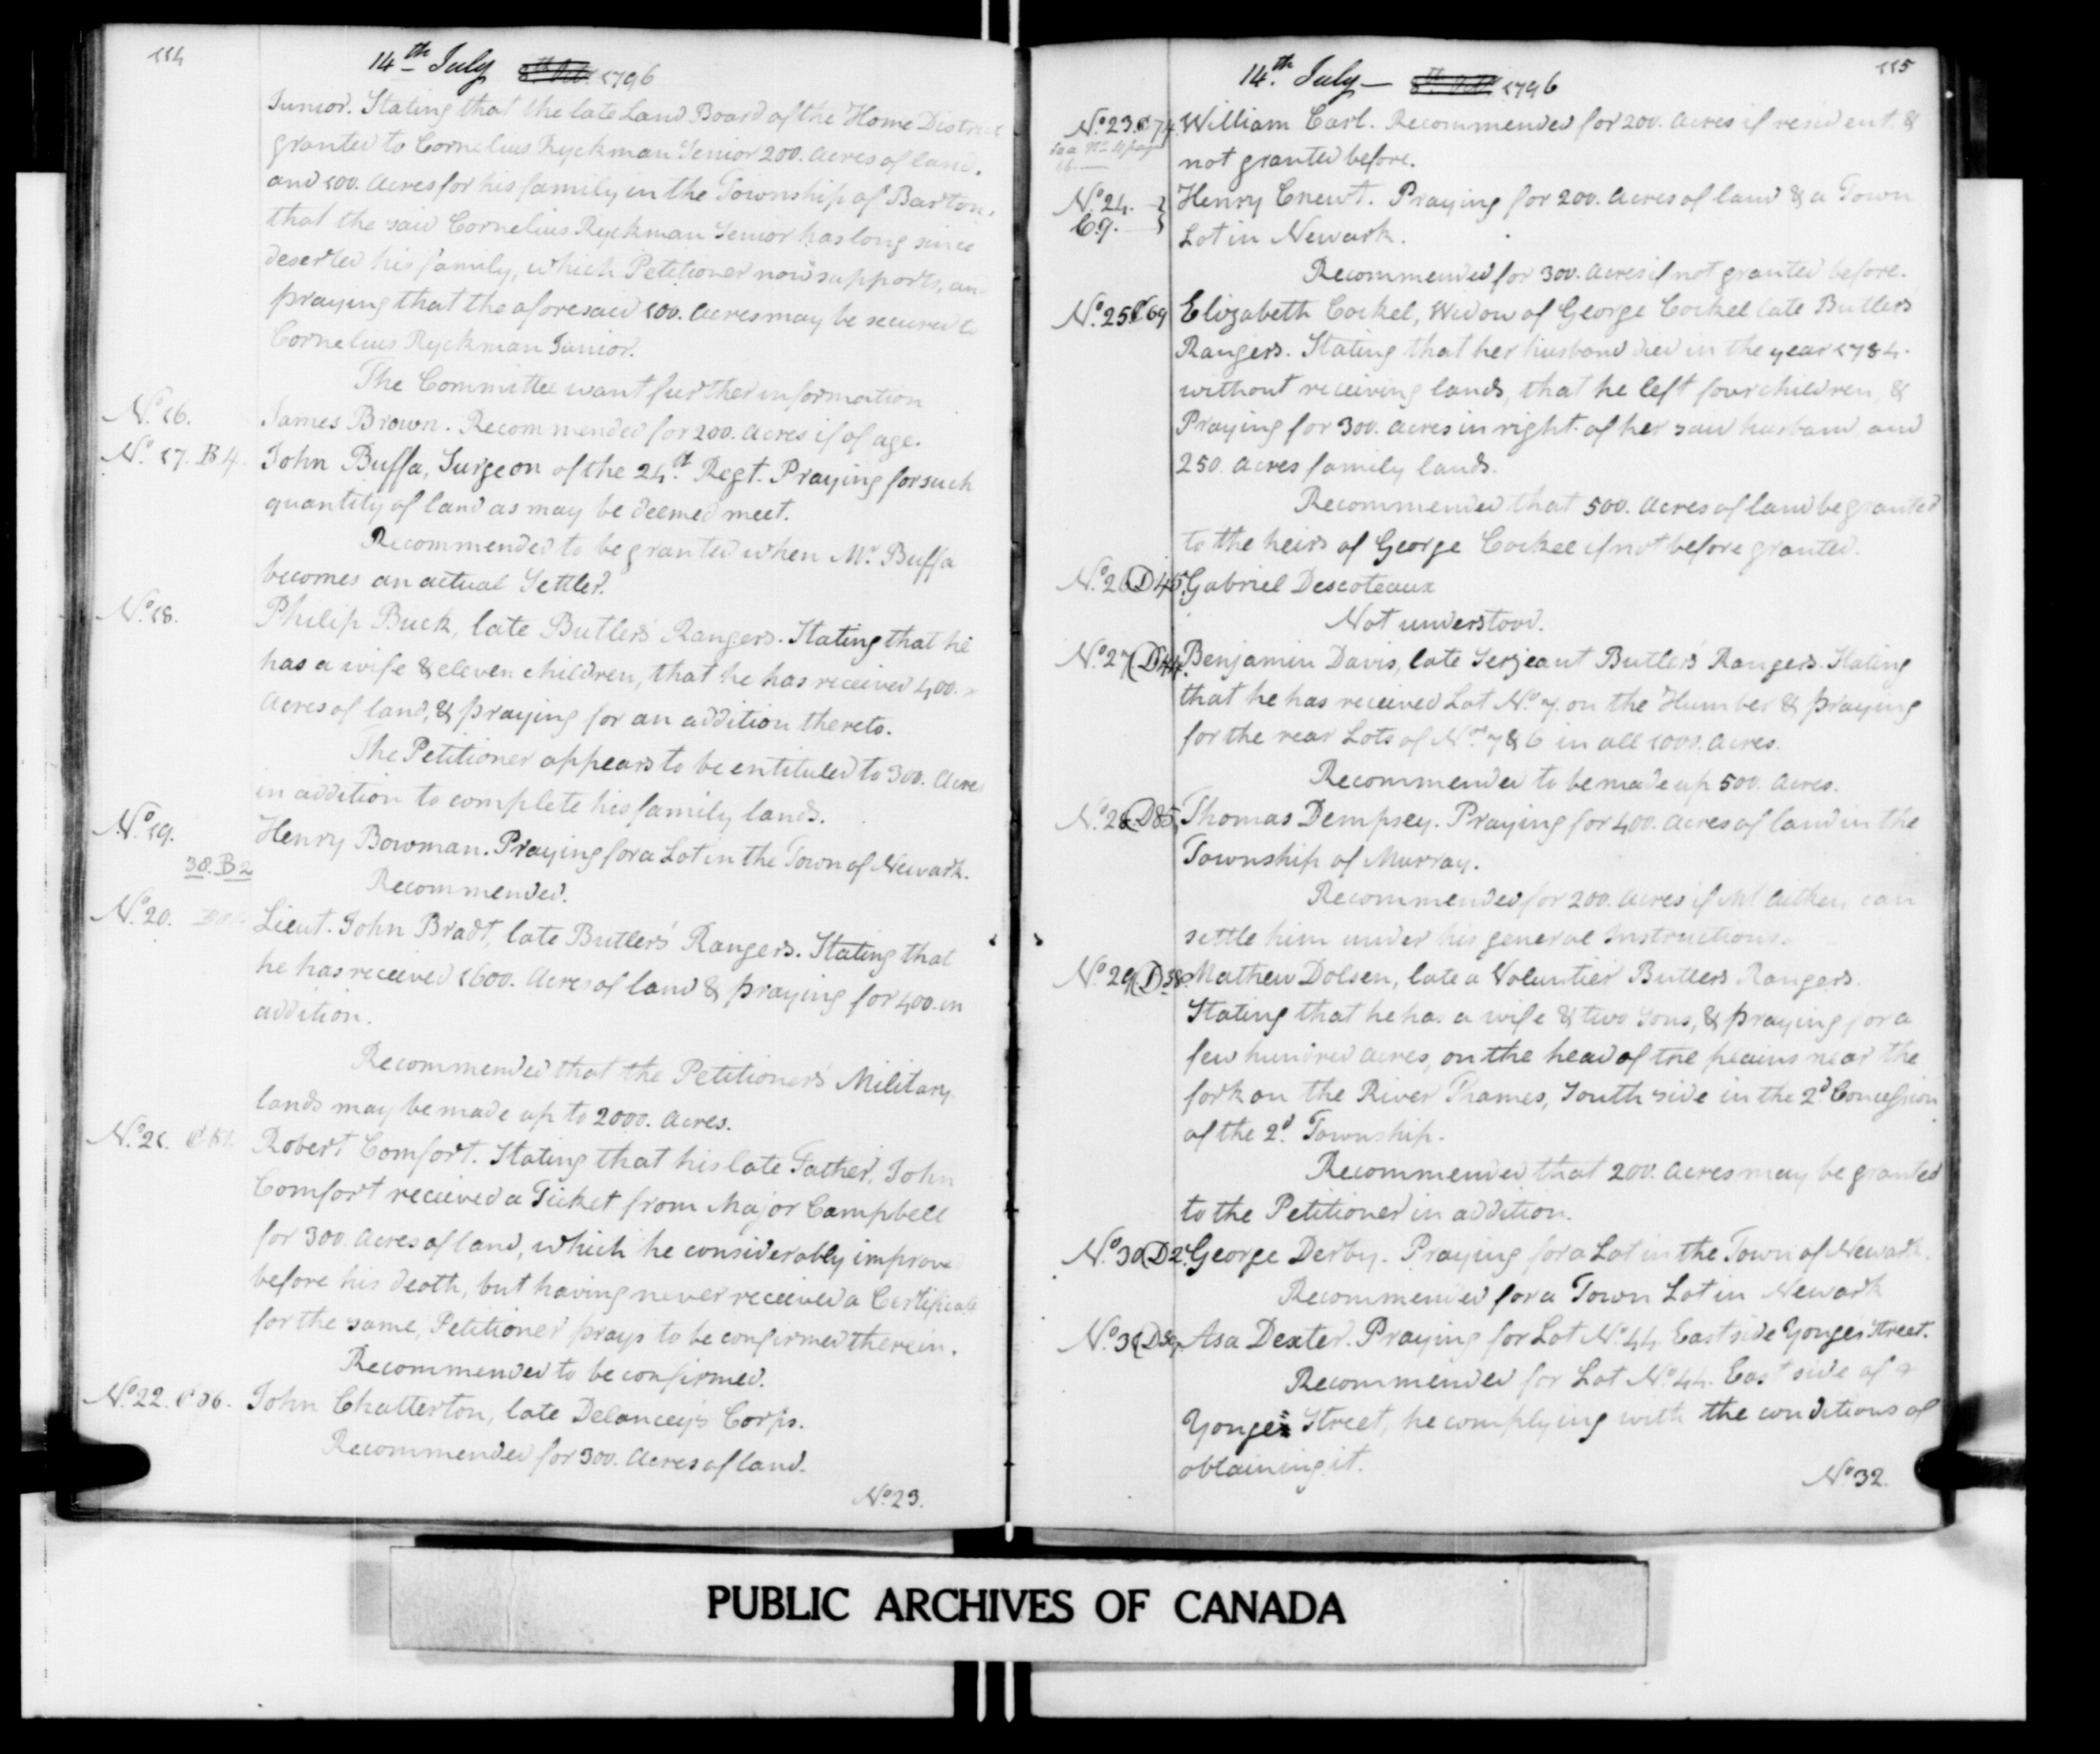 114
14th July 8th Octr 1796
Junior. Stating that the late Land Board of the Home District
granted to Cornelius Ryckman Senior 200. Acres of land,
and 100. Acres for his family in the Township of Barton,
that the said Cornelius Ryckman Senior has long since
deserted his family, which Petitioner now supports, and
praying that the aforesaid 100. Acres may be secured to
Cornelius Ryckman Junior.
The Committee want further information
No. 16. James Brown. Recommended for 200. Acres if of age.
No. 17. B4. John Buffa, Surgeon of the 24th Regt. Praying for such
quantity of land as may be deemed meet.
Recommended to be granted when Mr. Buffa
becomes an actual Settler.
No. 18. Philip Buck, late Butler's Rangers. Stating that he
has a wife & eleven children, that he has received 400.
Acres of land, & praying for an addition thereto.
The Petitioner appears to be entituled to 300. Acres
in addition to complete his family lands.
No. 19. Henry Bowman. Praying for a Lot in the Town of Newark.
38. B2
Recommended.
No. 20. Lieut. John Bradt, late Butlers' Rangers. Stating that
he has received 1600. Acres of land & praying for 400. in
addition.
Recommended that the Petitioner's Military
lands may be made up to 2000. Acres.
No. 21. Robert Comfort. Stating that his late Father, John
Comfort received a Ticket from Major Campbell
for 300. Acres of land, which he considerably improved
before his death, but having never received a Certificate
for the same, Petitioner prays to be confirmed therein.
Recommended to be confirmed.
No. 22. John Chatterton, late Delancey's Corps.
Recommended for 300. Acres of land.
No. 23.
115
14th July — 8th Octr 1796
No. 23. C74. William Carl. Recommended for 200. Acres if resident &
not granted before.
No. 24. Henry Cnewt. Praying for 200. Acres of land & a Town
C.9. Lot in Newark.
Recommended for 300. Acres if not granted before.
No. 25 C69 Elizabeth Cockel, Widow of George Cockel late Butlers
Rangers. Stating that her husband died in the year 1784.
without receiving lands, that he left four children, &
Praying for 300. Acres in right of her said husband, and
250. Acres family lands.
Recommended that 500. Acres of land be granted
to the heirs of George Cockel if not before granted.
No. 26 D45. Gabriel Descoteaux
Not understood.
No. 27 D44. Benjamin Davis, late Serjeant Butler's Rangers. Stating
that he has received Lot No. 7. on the Humber & praying
for the rear Lots of Nos. 7 & 6 in all 1000. Acres.
Recommended to be made up 500. Acres.
No. 28 D85. Thomas Dempsey. Praying for 400. Acres of land in the
Township of Murray.
Recommended for 200. Acres if Mr. Aitken, can
settle him under his general Instructions.
No. 29 D38. Mathew Dolsen, late a Voluntier Butlers Rangers.
Stating that he has a wife & two Sons, & praying for a
few hundred acres, on the head of the plains near the
fork on the River Thames, South side in the 2d. Concession
of the 2d. Township.
Recommended that 200. Acres may be granted
to the Petitioner in addition.
No. 30 D2. George Derby. Praying for a Lot in the Town of Newark.
Recommended for a Town Lot in Newark
No. 31 Asa Dexter. Praying for Lot No. 44 East side Yonge Street.
Recommended for Lot No. 44. East side of
Yonge Street, he complying with the conditions of
obtaining it.
No. 32.
PUBLIC ARCHIVES OF CANADA